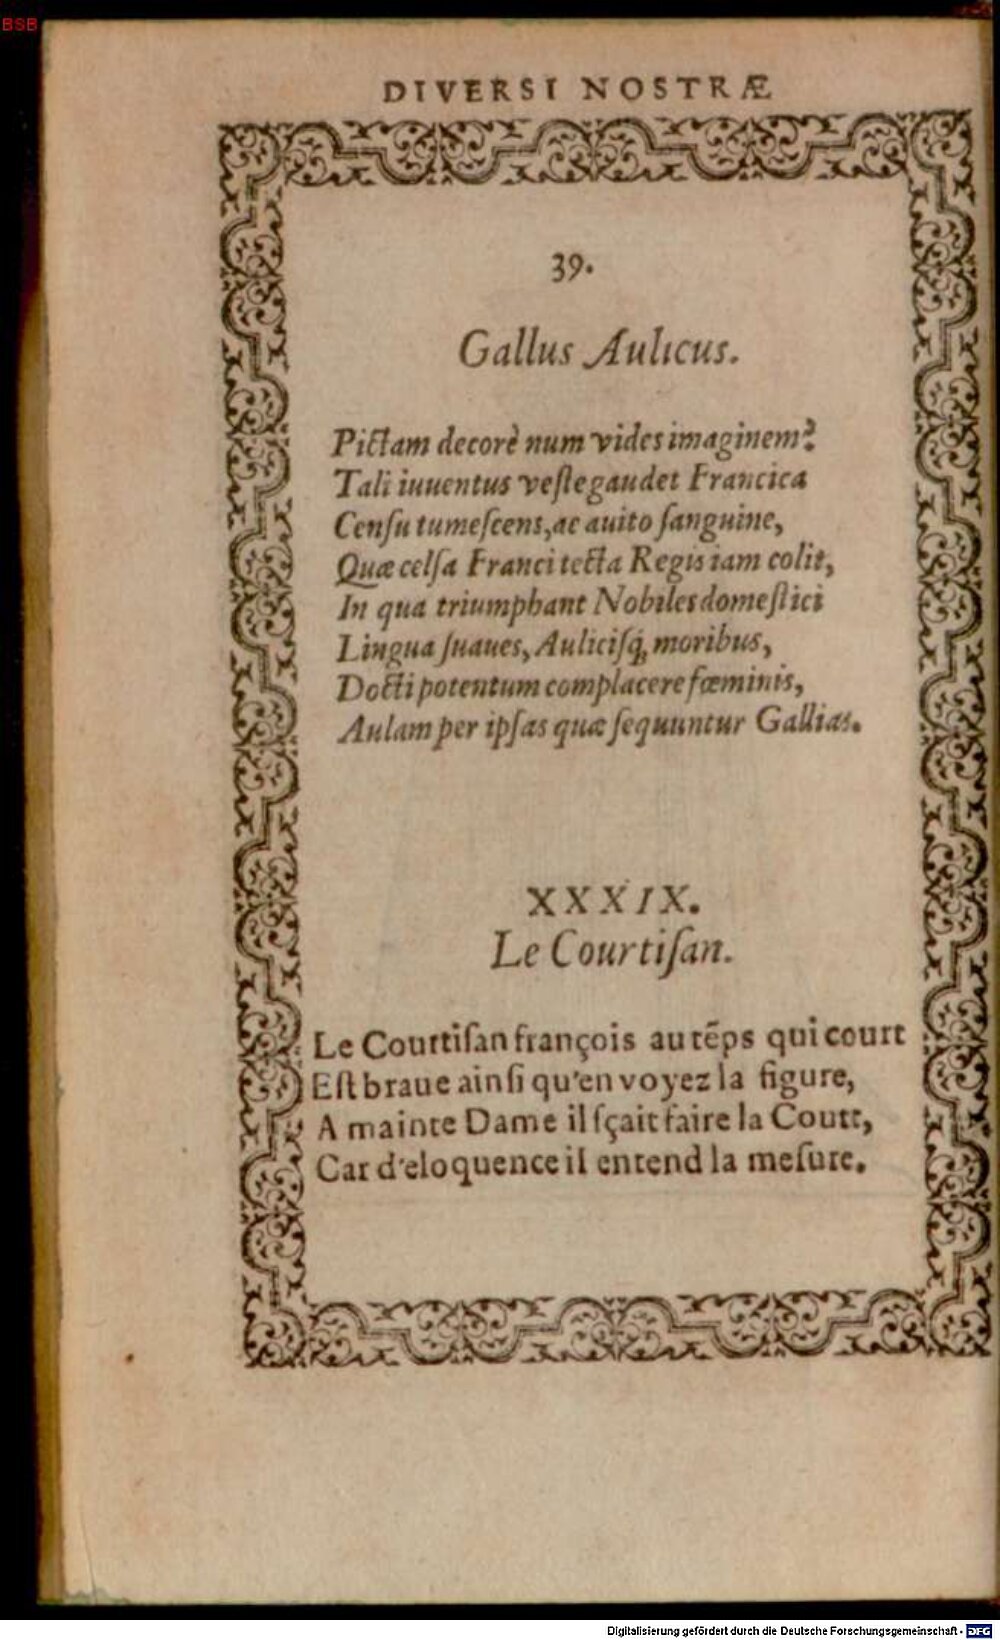 BSB
DIVERSI NOSTRÆ
39.
Gallus Aulicus.
Pictam decorè num vides imaginem?
Tali iuuentus veſte gaudet Francica
Cenſu tumeſcens, ac auito ſanguine,
Quæ celſa Franci tecta Regis iam colit,
In qua triumphant Nobiles domeſtici
Lingua ſuaues, Auliciſq́; moribus,
Docti potentum complacere fœminis,
Aulam per ipſas quæ ſequuntur Gallias.
XXXIX.
Le Courtiſan.
Le Courtiſan françois au tẽps qui court
Eſt braue ainſi qu'en voyez la figure,
A mainte Dame il ſçait faire la Court,
Car d'eloquence il entend la meſure.
Digitalisierung gefördert durch die Deutsche Forschungsgemeinschaft - DFG